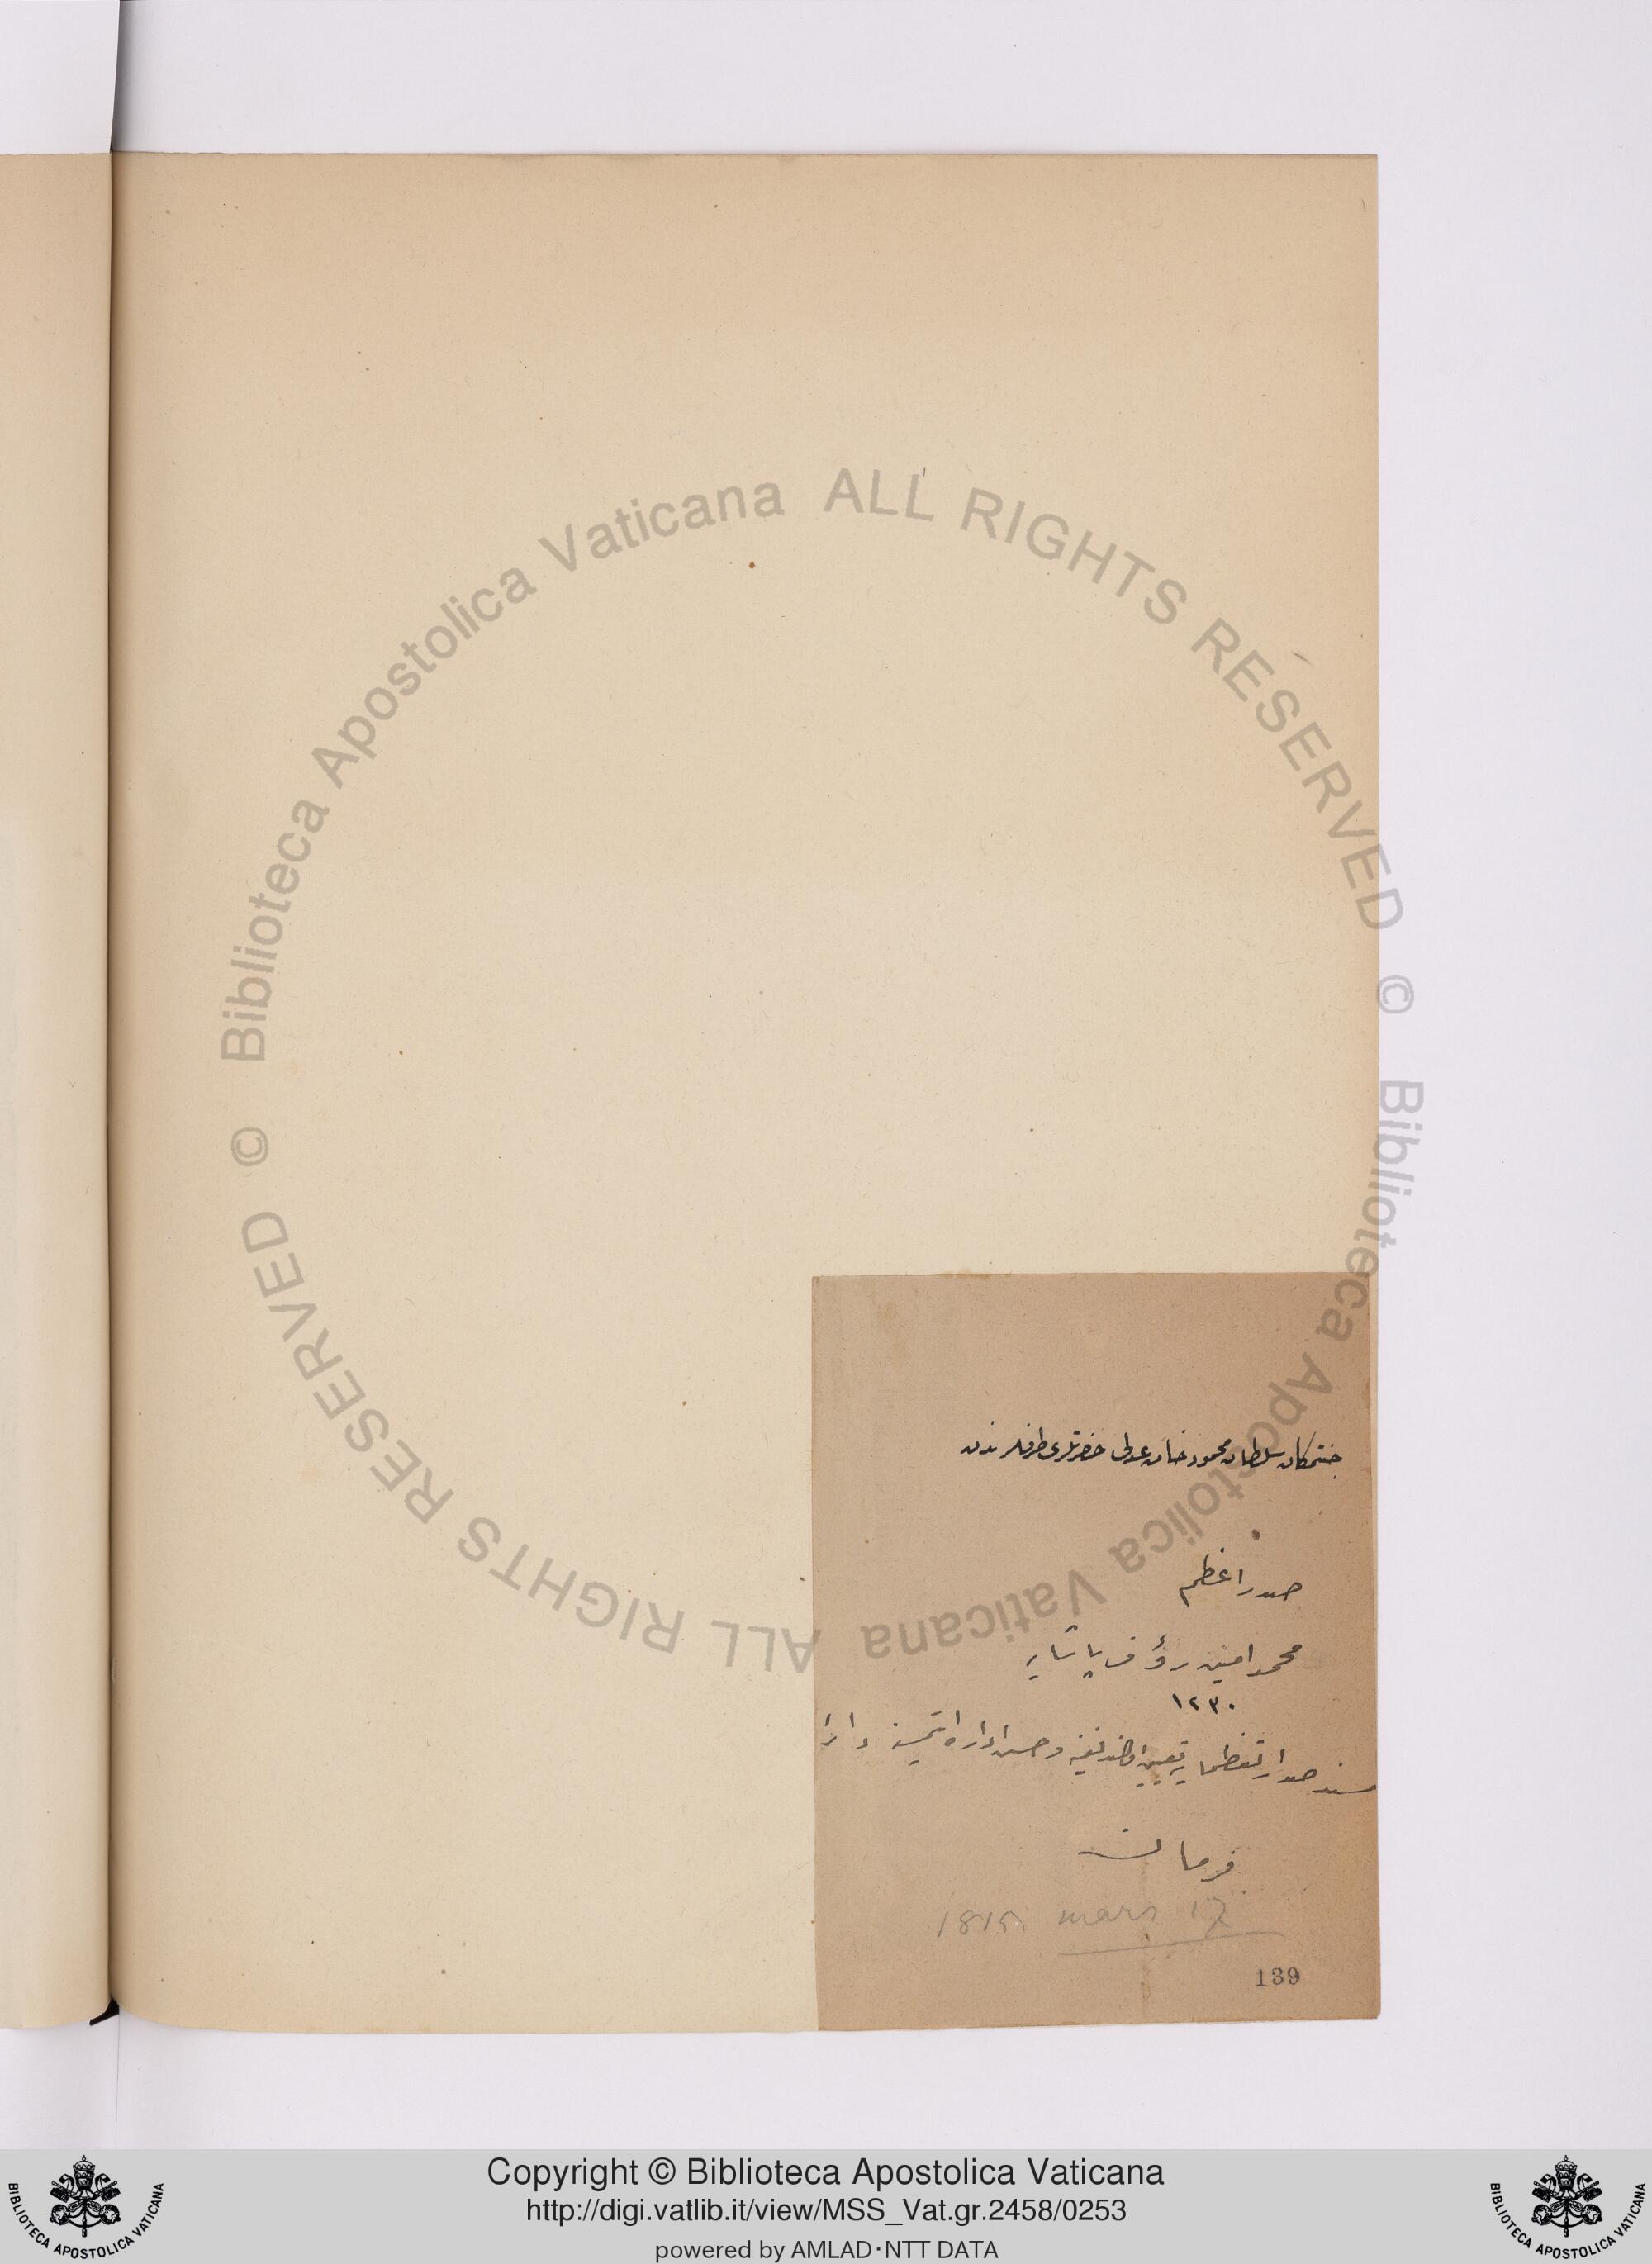 جنتمكان سلطان محمود خان عدلى حضرتلرى طرفلرندن
صدر اعظم
محمد امين رؤف پاشايه
١٢٣٠
مسند صدارتعظمايه تعيين اولندیغنه وحسن اداره ايتمسنه دائر
فرمان
mars 17
139
Biblioteca Apostolica Vaticana ALL RIGHTS RESERVED ©
Biblioteca Apostolica Vaticana ALL RIGHTS RESERVED ©
Copyright © Biblioteca Apostolica Vaticana
http://digi.vatlib.it/view/MSS_Vat.gr.2458/0253
powered by AMLAD·NTT DATA
BIBLIOTECA APOSTOLICA VATICANA
BIBLIOTECA APOSTOLICA VATICANA